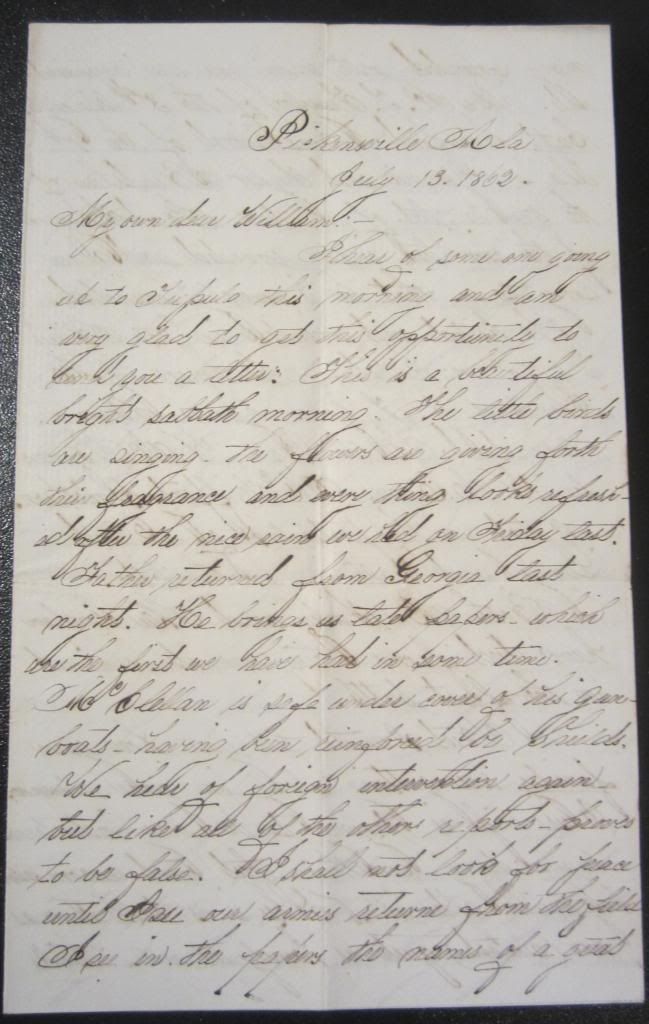 Pickensville Ala
July 13. 1862.
My own dear William:-
I hear of some one going
up to Tupulo this morning and am
very glad to get this opportunity to
send you a letter: This is a beautiful
bright sabbath morning. The little birds
are singing - the flowers are giving forth
their fragrance and every thing looks refresh-
ed after the nice rain we had on Friday last.
Father returned from Georgia last
night. He brings us late papers - which
are the first we have had in some time.
McClellan is safe under cover of his gun-
boats - having been reinforced by Shields.
We hear of foreign intervention again -
but like all of the other reports - proves
to be false. I shall not look for peace
until I see our armies returne from the field
I see in the papers the names of a great